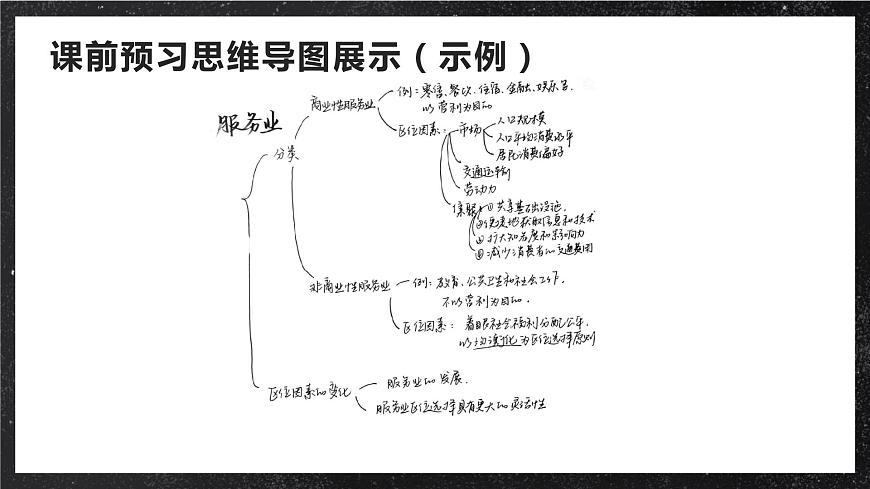 课前预习思维导图展示（示例）
服务业
分类
商业性服务业
例：零售、餐饮、住宿、金融、娱乐等.
以营利为目的
区位因素：市场
人口规模
人口平均消费水平
居民消费偏好
交通运输
劳动力
集聚
①共享基础设施.
②便捷地获取信息和技术
③扩大知名度和影响力
④减少消费者的交通费用
非商业性服务业
例：教育、公共卫生和社会工作.
不以营利为目的.
区位因素：着眼社会福利分配公平,
以均衡化为区位选择原则
区位因素的变化
服务业的发展.
服务业区位选择具有更大的灵活性